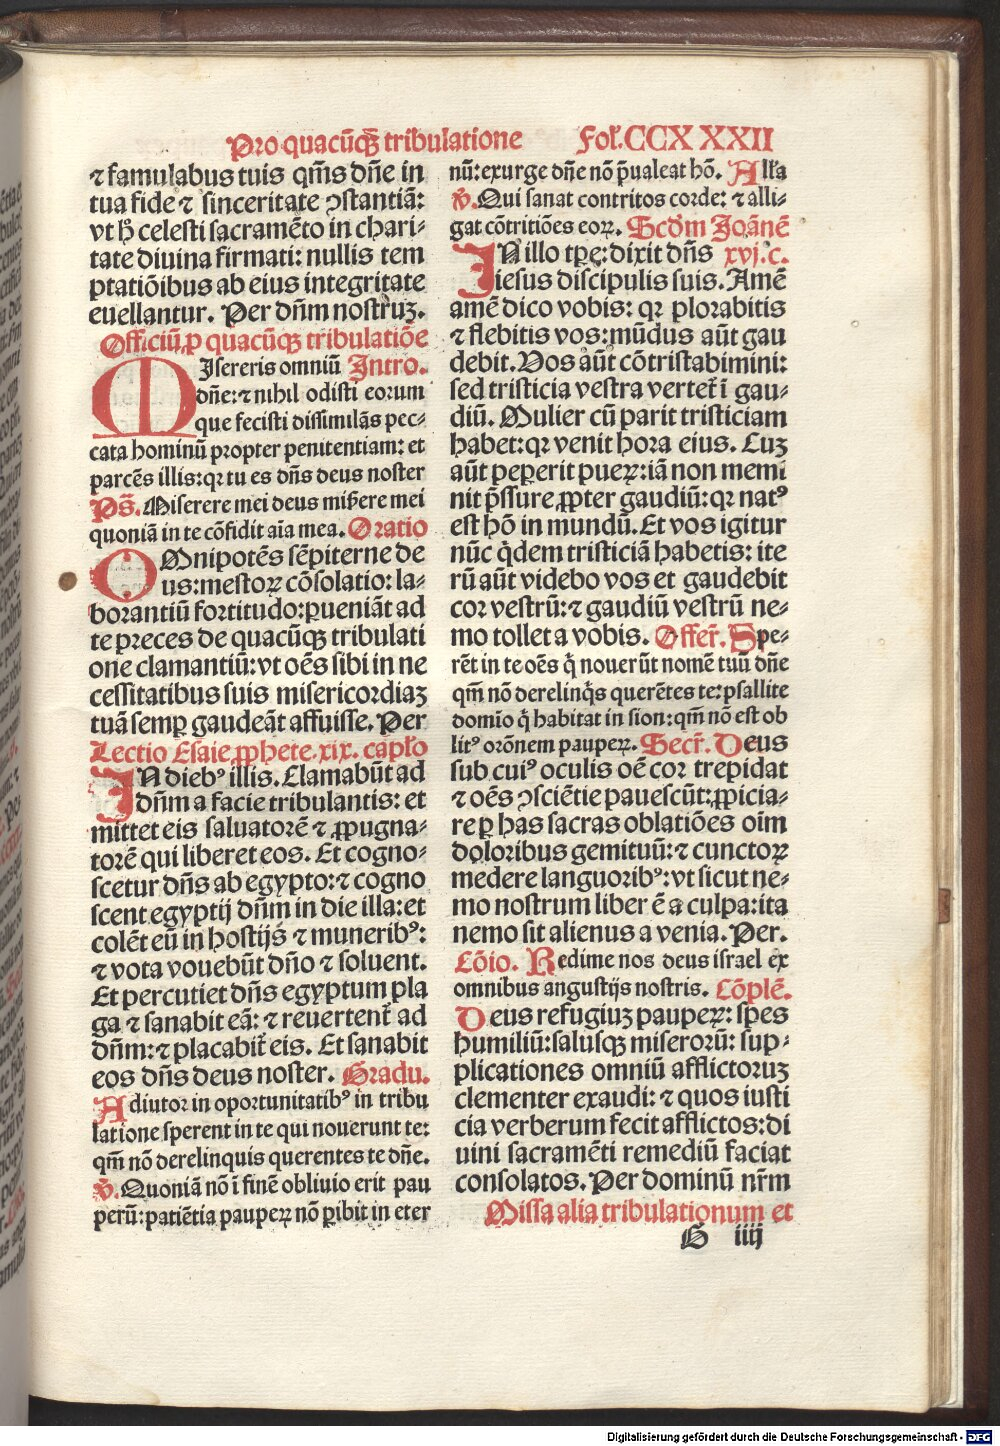 Pro quacūqȝ tribulatione Fol.CCXXXXII
⁊ famulabus tuis qm̄s dn̄e in
tua fide ⁊ sinceritate ↄstantiā:
vt hꝰ celesti sacramēto in chari-
tate diuina firmati: nullis tem
ptatiōibus ab eius integritate
euellantur. Per dn̄m nostruȝ.
Officiū ꝑ quacūqȝ tribulatiōe
MIsereris omniū Intro.
dn̄e: ⁊ nihil odisti eorum
que fecisti dissimilās pec-
cata hominū propter penitentiam: et
parcēs illis: qꝛ tu es dn̄s deus noster
Ps̄. Miserere mei deus mis̄ere mei
quoniā in te cōfidit aīa mea. Oratio
OMnipotēs sēpiterne de
us: mestoꝝ cōsolatio: la-
borantiū fortitudo: ꝑueniāt ad
te preces de quacūqȝ tribulati
one clamantiū: vt oēs sibi in ne
cessitatibus suis misericordiaȝ
tuā semꝑ gaudeāt affuisse. Per
Lectio Esaie ꝓphete .xix. capl̄o
IN diebꝰ illis. Clamabūt ad
dn̄m a facie tribulantis: et
mittet eis saluatorē ⁊ ꝓpugna-
torē qui liberet eos. Et cogno-
scetur dn̄s ab egypto: ⁊ cogno
scent egyptij dn̄m in die illa: et
colēt eū in hostijs ⁊ muneribꝰ:
⁊ vota vouebūt dn̄o ⁊ soluent.
Et percutiet dn̄s egyptum pla
ga ⁊ sanabit eā: ⁊ reuertent̄ ad
dn̄m: ⁊ placabit̄ eis. Et sanabit
eos dn̄s deus noster. Gradu.
Adiutor in oportunitatibꝰ in tribu
latione sperent in te qui nouerunt te:
qm̄ nō derelinquis querentes te dn̄e.
℣. Quoniā nō ī finē obliuio erit pau
perū: patiētia pauperꝝ nō ꝑibit in eter
nū: exurge dn̄e nō p̄ualeat hō. All'a
℣. Qui sanat contritos corde: ⁊ alli-
gat cōtritiōes eoꝝ. Scd̄m Joānē
IN illo tꝑe: dixit dn̄s xvj. c.
iesus discipulis suis. Amē
amē dico vobis: qꝛ plorabitis
⁊ flebitis vos: mūdus aūt gau
debit. Vos aūt cōtristabimini:
sed tristicia vestra vertet̄ ī gau-
diū. Mulier cū parit tristiciam
habet: qꝛ venit hora eius. Cuȝ
aūt peperit pueꝝ: iā non memi
nit p̄ssure ꝓpter gaudiū: qꝛ natꝰ
est hō in mundū. Et vos igitur
nūc q̄dem tristiciā habetis: ite
rū aūt videbo vos et gaudebit
cor vestrū: ⁊ gaudiū vestrū ne-
mo tollet a vobis. Offer̄. Spe-
rēt in te oēs q̄ nouerūt nomē tuū dn̄e
qm̄ nō derelinq̄s querētes te: psallite
domīo q̄ habitat in sion: qm̄ nō est ob
litꝰ orōnem pauperꝝ. Secr̄. Deus
sub cuiꝰ oculis oē cor trepidat
⁊ oēs ↄsciētie pauescūt: ꝓpicia-
re ꝑ has sacras oblatiōes oīm
doloribus gemituū: ⁊ cunctoꝝ
medere languoribꝰ: vt sicut ne-
mo nostrum liber ē a culpa: ita
nemo sit alienus a venia. Per.
Cōio. Redime nos deus israel ex
omnibus angustijs nostris. Cōplē.
Deus refugiuȝ pauperꝝ: spes
humiliū: salusqȝ miserorū: sup-
plicationes omniū afflictoruȝ
clementer exaudi: ⁊ quos iusti
cia verberum fecit afflictos: di
uini sacramēti remediū faciat
consolatos. Per dominū nr̄m
Missa alia tribulationum et
G iiij
Digitalisierung gefördert durch die Deutsche Forschungsgemeinschaft - DFG